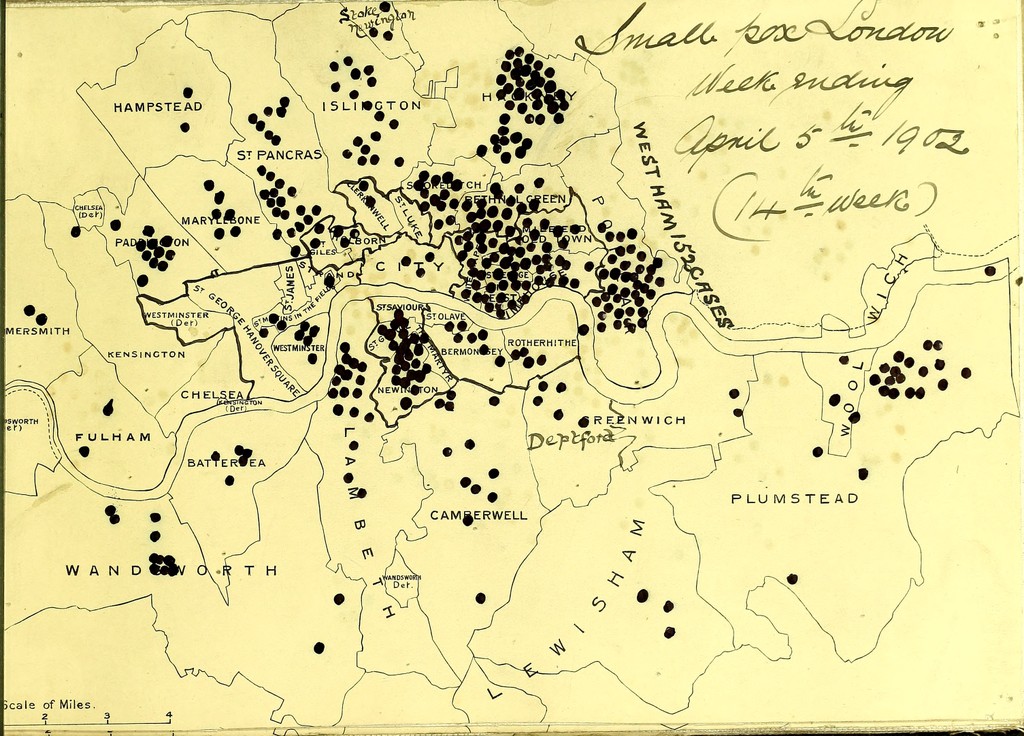 Small pox London
Week ending
April 5th 1902
(14th week)
Stoke
Newington
HAMPSTEAD
ISLINGTON
HACKNEY
WEST HAM 152 CASES
ST PANCRAS
SHOREDITCH
BETHNAL GREEN
CLERKENWELL
ST LUKE
CHELSEA
(Det)
MARYLEBONE
PADDINGTON
HOLBORN
ST GILES
MILE END
OLD TOWN
STRAND
CITY
ST GEORGE
POPLAR
ST JAMES
ST MARTINS IN THE FIELDS
ST GEORGE HANOVER SQUARE
WESTMINSTER
(Det)
WESTMINSTER
MERSMITH
KENSINGTON
ST SAVIOURS
ST OLAVE
BERMONDSEY
ROTHERHITHE
NEWINGTON
CHELSEA
(KENSINGTON
(Det)
WOOLWICH
GREENWICH
Deptford
FULHAM
DSWORTH
et)
BATTERSEA
WOOL
PLUMSTEAD
LAMBETH
CAMBERWELL
WANDSWORTH
WANDSWORTH
Det.
LEWISHAM
Scale of Miles.
2 3 4